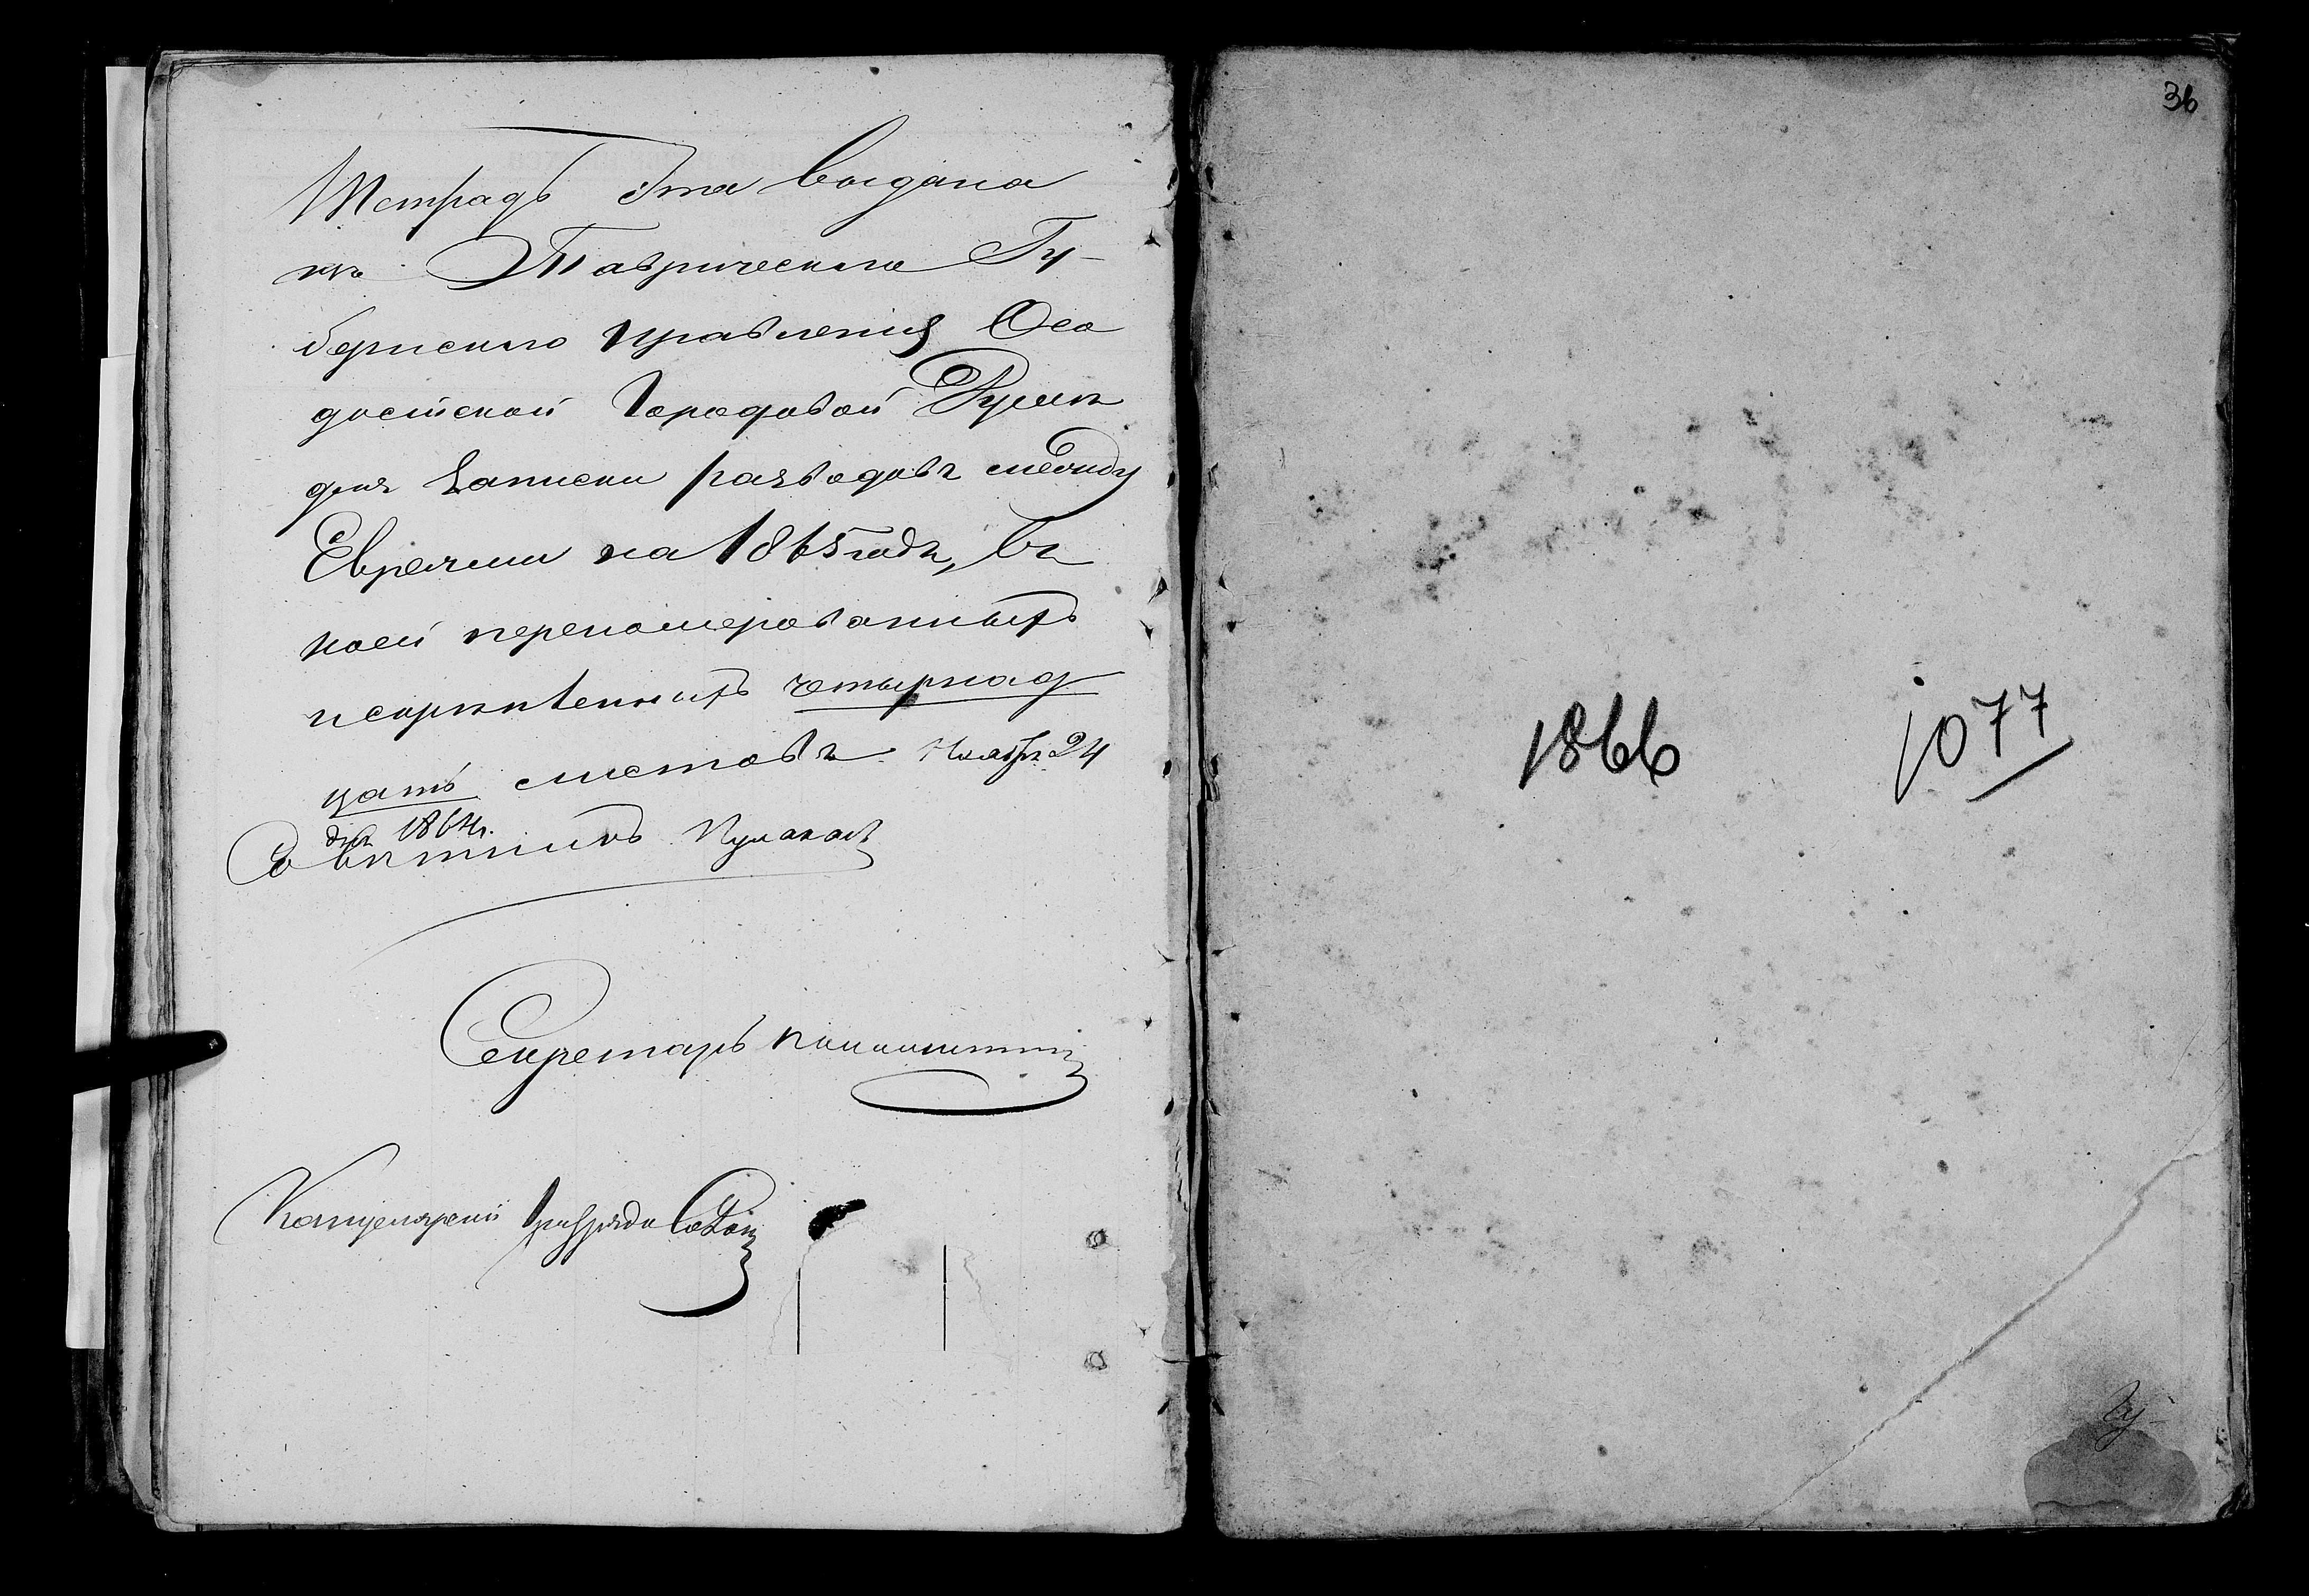 Тетрадь эта выдана
изъ Таврическаго Гу-
бернскаго Правленія Ѳео
досійской Городовой Думѣ
для записки разводовъ между
Евреями на 1865 годъ, въ
коей переномерованныхъ
и скрѣпленныхъ четырнад
цать листовъ. Ноября 24
дня 1864 г.
Совѣтникъ
Секретарь
Канцелярскій
36
1866
1077